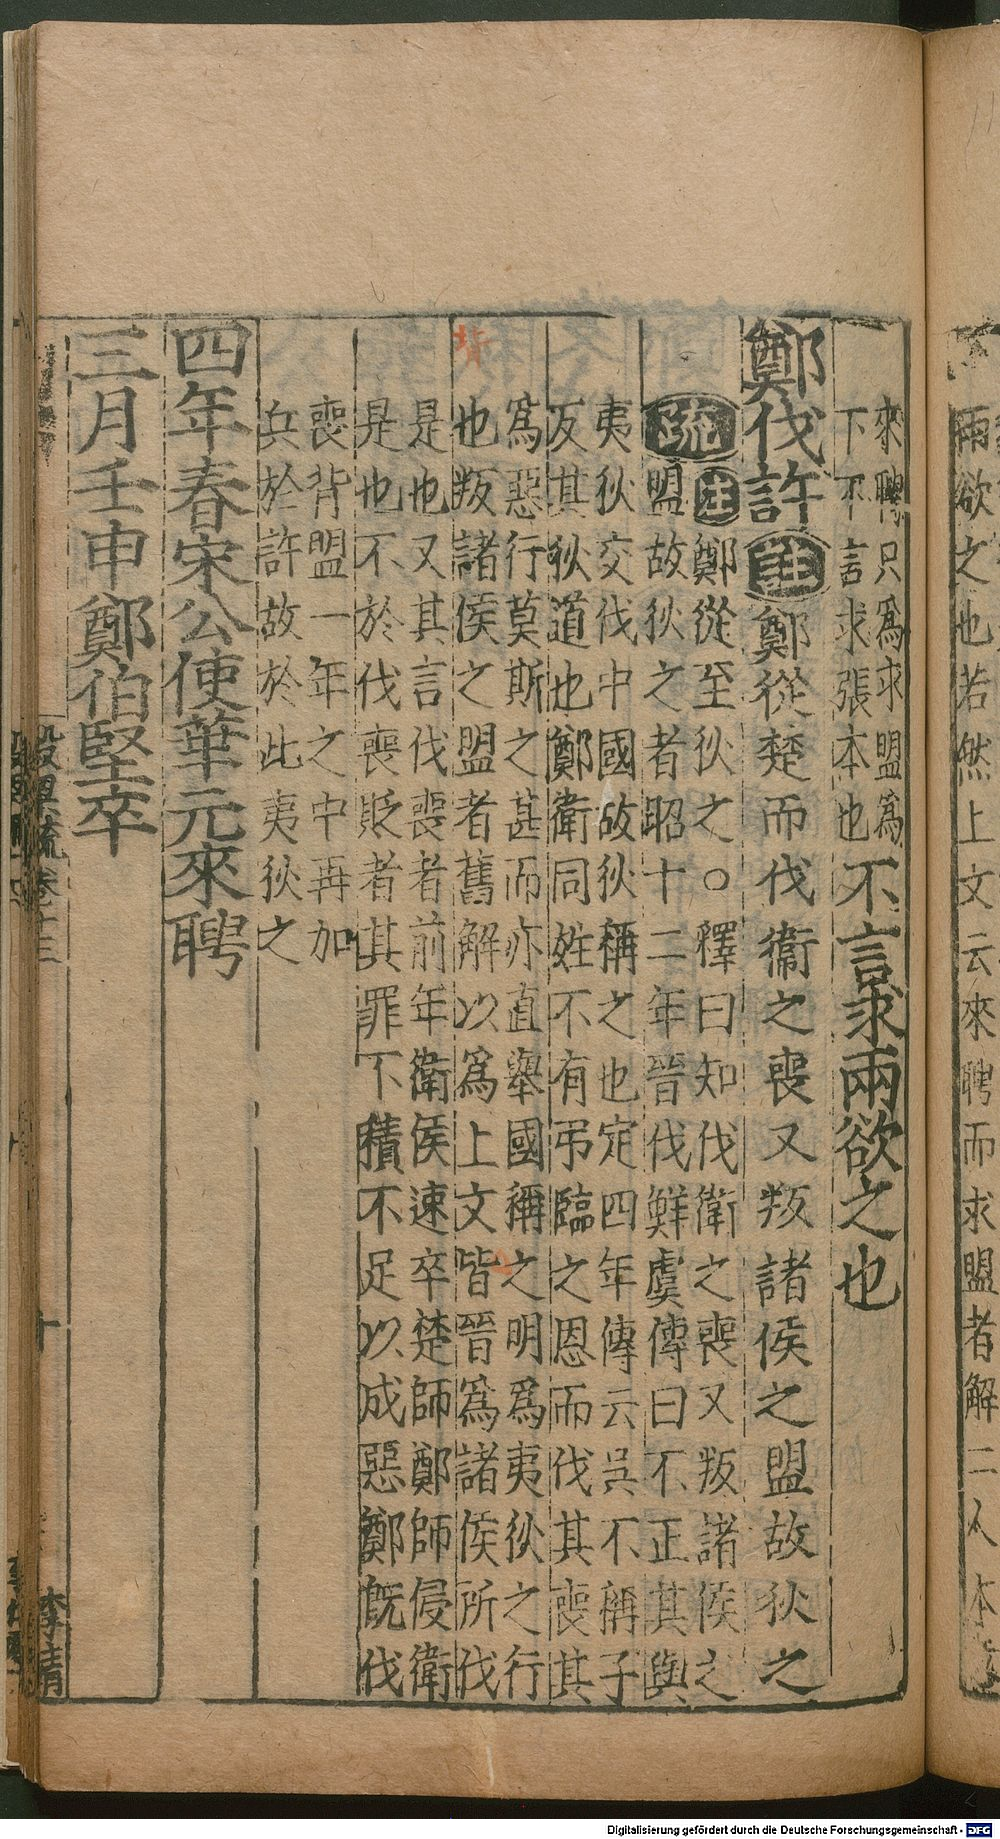 兩欲之也若然上文云來聘而求盟者解二人本
來聘只爲求盟爲
下不言求張本也
不言求兩欲之也
鄭伐許
注
鄭從楚而伐衞之喪又叛諸侯之盟故狄之
疏
注鄭從至狄之○釋曰知伐衛之喪又叛諸侯之
盟故狄之者昭十二年晉伐鮮虞傳曰不正其與
夷狄交伐中國故狄稱之也定四年傳云吳不稱子
反其狄道也鄭衛同姓不有弔臨之恩而伐其喪其
爲惡行莫斯之甚而亦直舉國稱之明爲夷狄之行
也叛諸侯之盟者舊解以爲上文皆晉爲諸侯所伐
是也又其言伐喪者前年衛侯速卒楚師鄭師侵衛
是也不於伐喪貶者其罪不積不足以成惡鄭旣伐
喪背盟一年之中再加
兵於許故於此夷狄之
四年春宋公使華元來聘
三月壬申鄭伯堅卒
卷十三
十
Digitalisierung gefördert durch die Deutsche Forschungsgemeinschaft - DFG